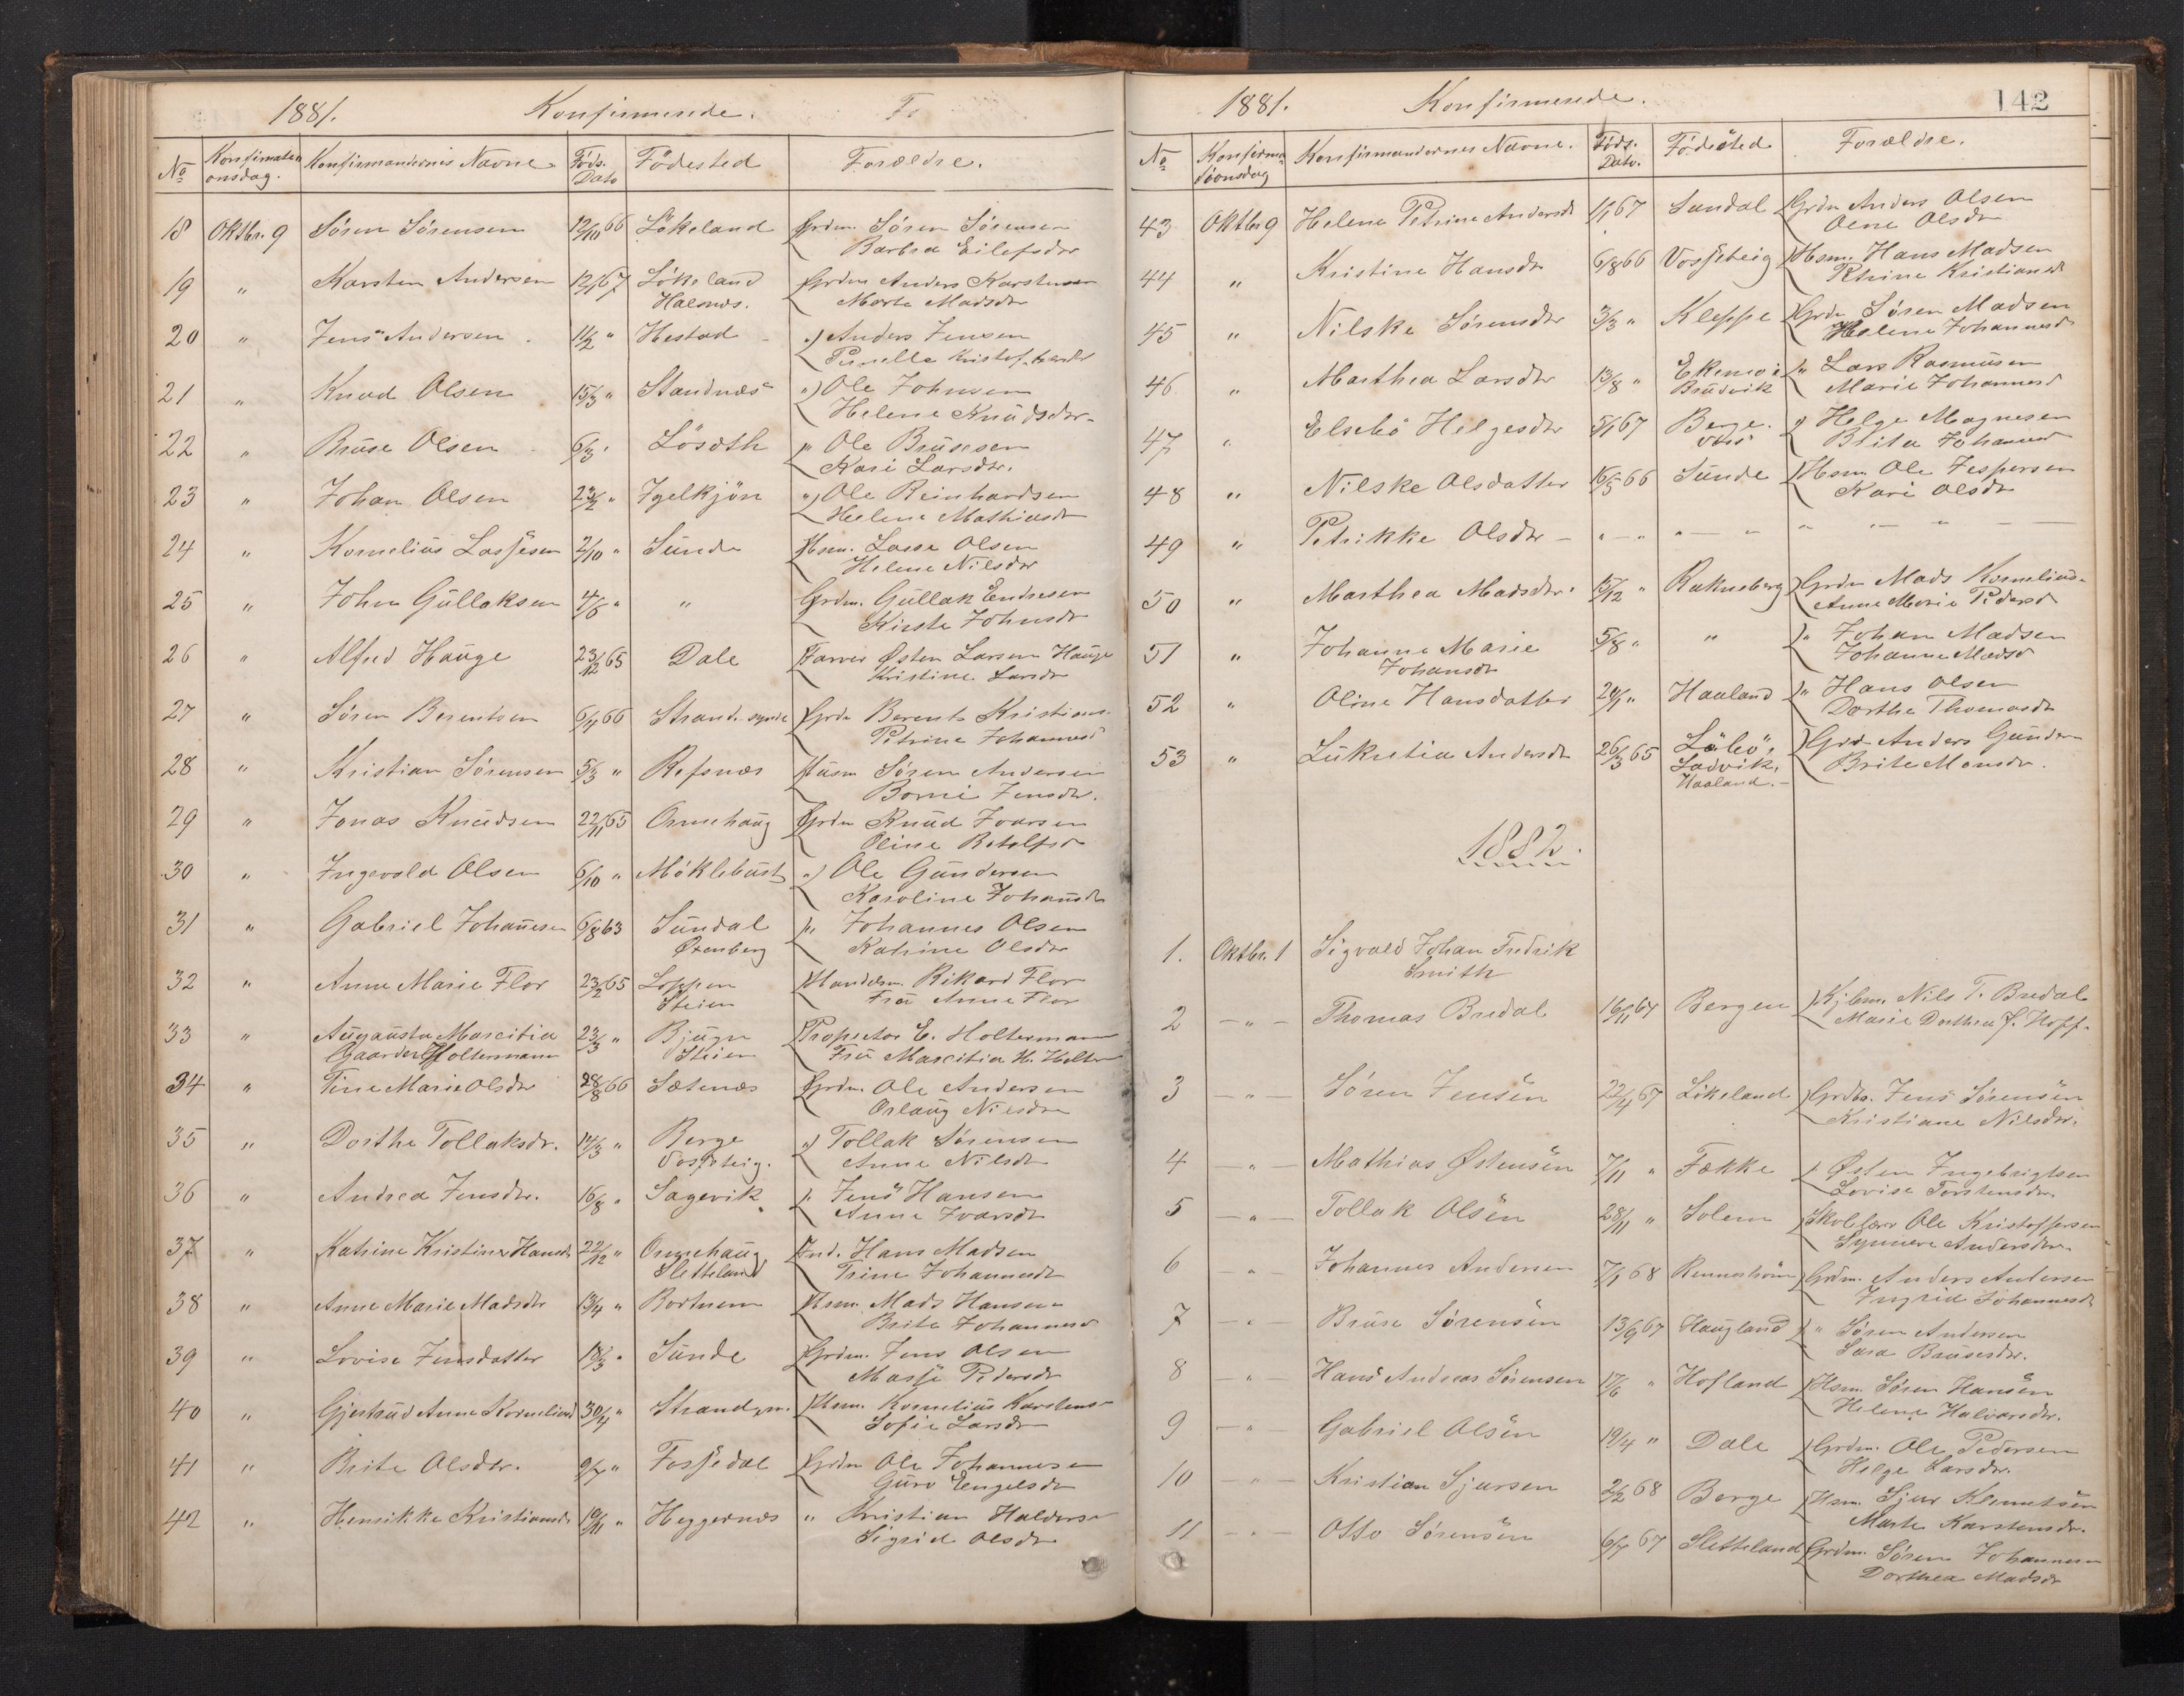 1881. Konfirmerede.
No Konfirmati onsdag. Konfirmandernes Navne Føds. Dato Födested Forældre.
18 Oktbr. 9 Søren Sørensen 12/10 66 Lökeland Grdm. Søren Sørensen
Barbra Eilefsdtr
19 " Karsten Andersen 12/1 67 Lökeland Grdm Anders Karstensen
Halsnæs. Marte Madsdtr
20 " Jens Andersen 11/2 " Hestad " Anders Jensen
Pernille
21 " Knud Olsen 15/3 " Standnæs " Ole Johnsen
Helene Knudsdtr.
22 " Bruse Olsen 6/3 " Lösæth " Ole Brusesen
Kari Larsdtr.
23 " Johan Olsen 23/2 " Igelkjön " Ole Reinhardsen
Helene Mathiasdtr
24 " Kornelius Lassesen 2/10 " Sunde Hsm. Lasse Olsen
Helene Nilsdtr
25 " John Gullaksen 4/6 " " Grdm. Gullak Endresen
Kirste Johnsdtr
26 " Alfred Hauge 23/12 65 Dale Farver Østen Larsen Hauge
Kristine Larsdtr
27 " Søren Berentsen 6/11 66 Strand Grdm Berent Kristians.
Petrine Johannesd
28 " Kristian Sörensen 5/3 " Refsnæs Husm Søren Andersen
Jensdtr.
29 " Jonas Knudsen 22/11 65 Ormehaug Grdm Knud Ivarsen
Oline Botolfsd
30 " Ingevald Olsen 6/10 " Möklebust " Ole Gundersen
Karoline Johansdtr
31 " Gabriel Johannesen 6/8 63 Sundal " Johannes Olsen
Øxenberg Katrine Olsdtr
32 " Anne Marie Flor 23/2 65 Loppen Handelsm. Rikard Flor
Steien Fru Anne Flor
33 " Augausta Marcitia 23/3 " Bjugn Proprietær E. Holtermann
Gaarder Holtermann Steien Fru Marcitia H. Holterm
34 " Tine Marie Olsdtr 28/8 66 Sætenæs Grdm. Ole Andersen
Orlaug Nilsdtr
35 " Dorthe Tollaksdr. 14/3 " Berge " Tollak Sørensen
Vossteig. Anne Nilsdtr
36 " Andrea Jensdtr. 16/8 " Sagevik " Jens Hansen
Anne Ivarsdtr
37 " Katrine Kristine Hansdr 22/12 " Ormehaug Ind. Hans Madsen
Sletteland Trine Johannesdtr
38 " Anne Marie Madsdtr 13/4 " Bortnem Hsm. Mads Hansen
Brite Johannesd
39 " Lovise Jensdatter 18/3 " Sunde Grdm. Jens Olsen
Masse Pedersdtr
40 " Gjertrud Anne Kornelius 30/4 " Strand Hsm. Kornelius Karstens
Sofie Larsdtr
41 " Brite Olsdtr. 9/7 " Fossedal Grdm Ole Johannesen
Guro Engelsdtr
42 " Henrikke Kristiansdr. 19/11 " Heggernæs " Kristian Halders
Sigrid Olsdtr
1881. Konfirmerede. 142
No Konfirma Söonsdag Konfirmandernes Navne. Føds. Dato. Födested Forældre.
43 Oktbr 9 Helene Petrine Andersdt 1/1 67 Sandal Grdm Anders Olsen
Oline Olsdtr
44 " Kristine Hansdtr 6/8 66 Vossteig Hsm. Hans Madsen
Kristiansdt
45 " Nilske Sørensdtr 3/3 " Kleppe Grdm Søren Madsen
Helene Johannesd
46 " Marthea Larsdtr 13/8 " Ekemo i " Lars Rasmusen
Brudvik Marie Johannesd
47 " Elsebö Helgesdtr 5/1 67 Berge. " Helge Magnesen
Brita Johannesd
48 " Nilske Olsdatter 16/5 66 Sunde Hsm. Ole Jespersen
Kari Olsdtr
49 " Petrikke Olsdtr — " — " " — " " — " —
50 " Marthea Madsdtr. 15/12 " Rakneberg Grdm Mads Kornelius
Anne Marie Pedersd
51 " Johanne Marie 5/8 " " " Johan Madsen
Johansdtr Johanne Madsd
52 " Oline Hansdatter 24/1 " Haaland " Hans Olsen
Dorthe Thomasdt
53 " Lukretia Andersdt 26/3 65 Löbö, Grd Anders Gunders
Ladvik, Brite Monsdr.
Haaland. —
1882.
1. Oktbr. 1 Sigvald Johan Fredrik
Smith
2 — " — Thomas Bredal 16/11 67 Bergen Kjbm. Nils T. Bredal
Marie Dorthea f. Hoff.
3 — " — Sören Jensen 22/4 67 Lökeland Grdbr. Jens Sörensen
Kristiane Nilsdtr.
4 — " — Mathias Østensen 7/11 " Fække " Østen Ingebrigtsen
Lovise Torstensdtr.
5 — " — Tollak Olsen 28/11 " Solem Skolelærer Ole Kristoffersen
Synneve Andersdtr.
6 — " — Johannes Andersen 7/1 68 Grdm. Anders Andersen
Ingrid Johannesdt
7 — " — Bruse Sörensen 13/9 67 Haugland " Sören Andersen
Sara Brusesdtr.
8 — " — Hans Andreas Sörensen 17/6 " Hofland Hsm. Sören Hansen
Helene Halvarsdtr.
9 — " — Gabriel Olsen 19/4 " Dale Grdm. Ole Pedersen
Helge Larsdtr.
10 — " — Kristian Sjursen 2/2 68 Berge Hsm. Sjur Klemetsen
Marte Karstensdtr.
11 — " — Otto Sörensen 6/7 67 Sletteland Grdm. Sören Johannesen
Dorthea Madsdtr